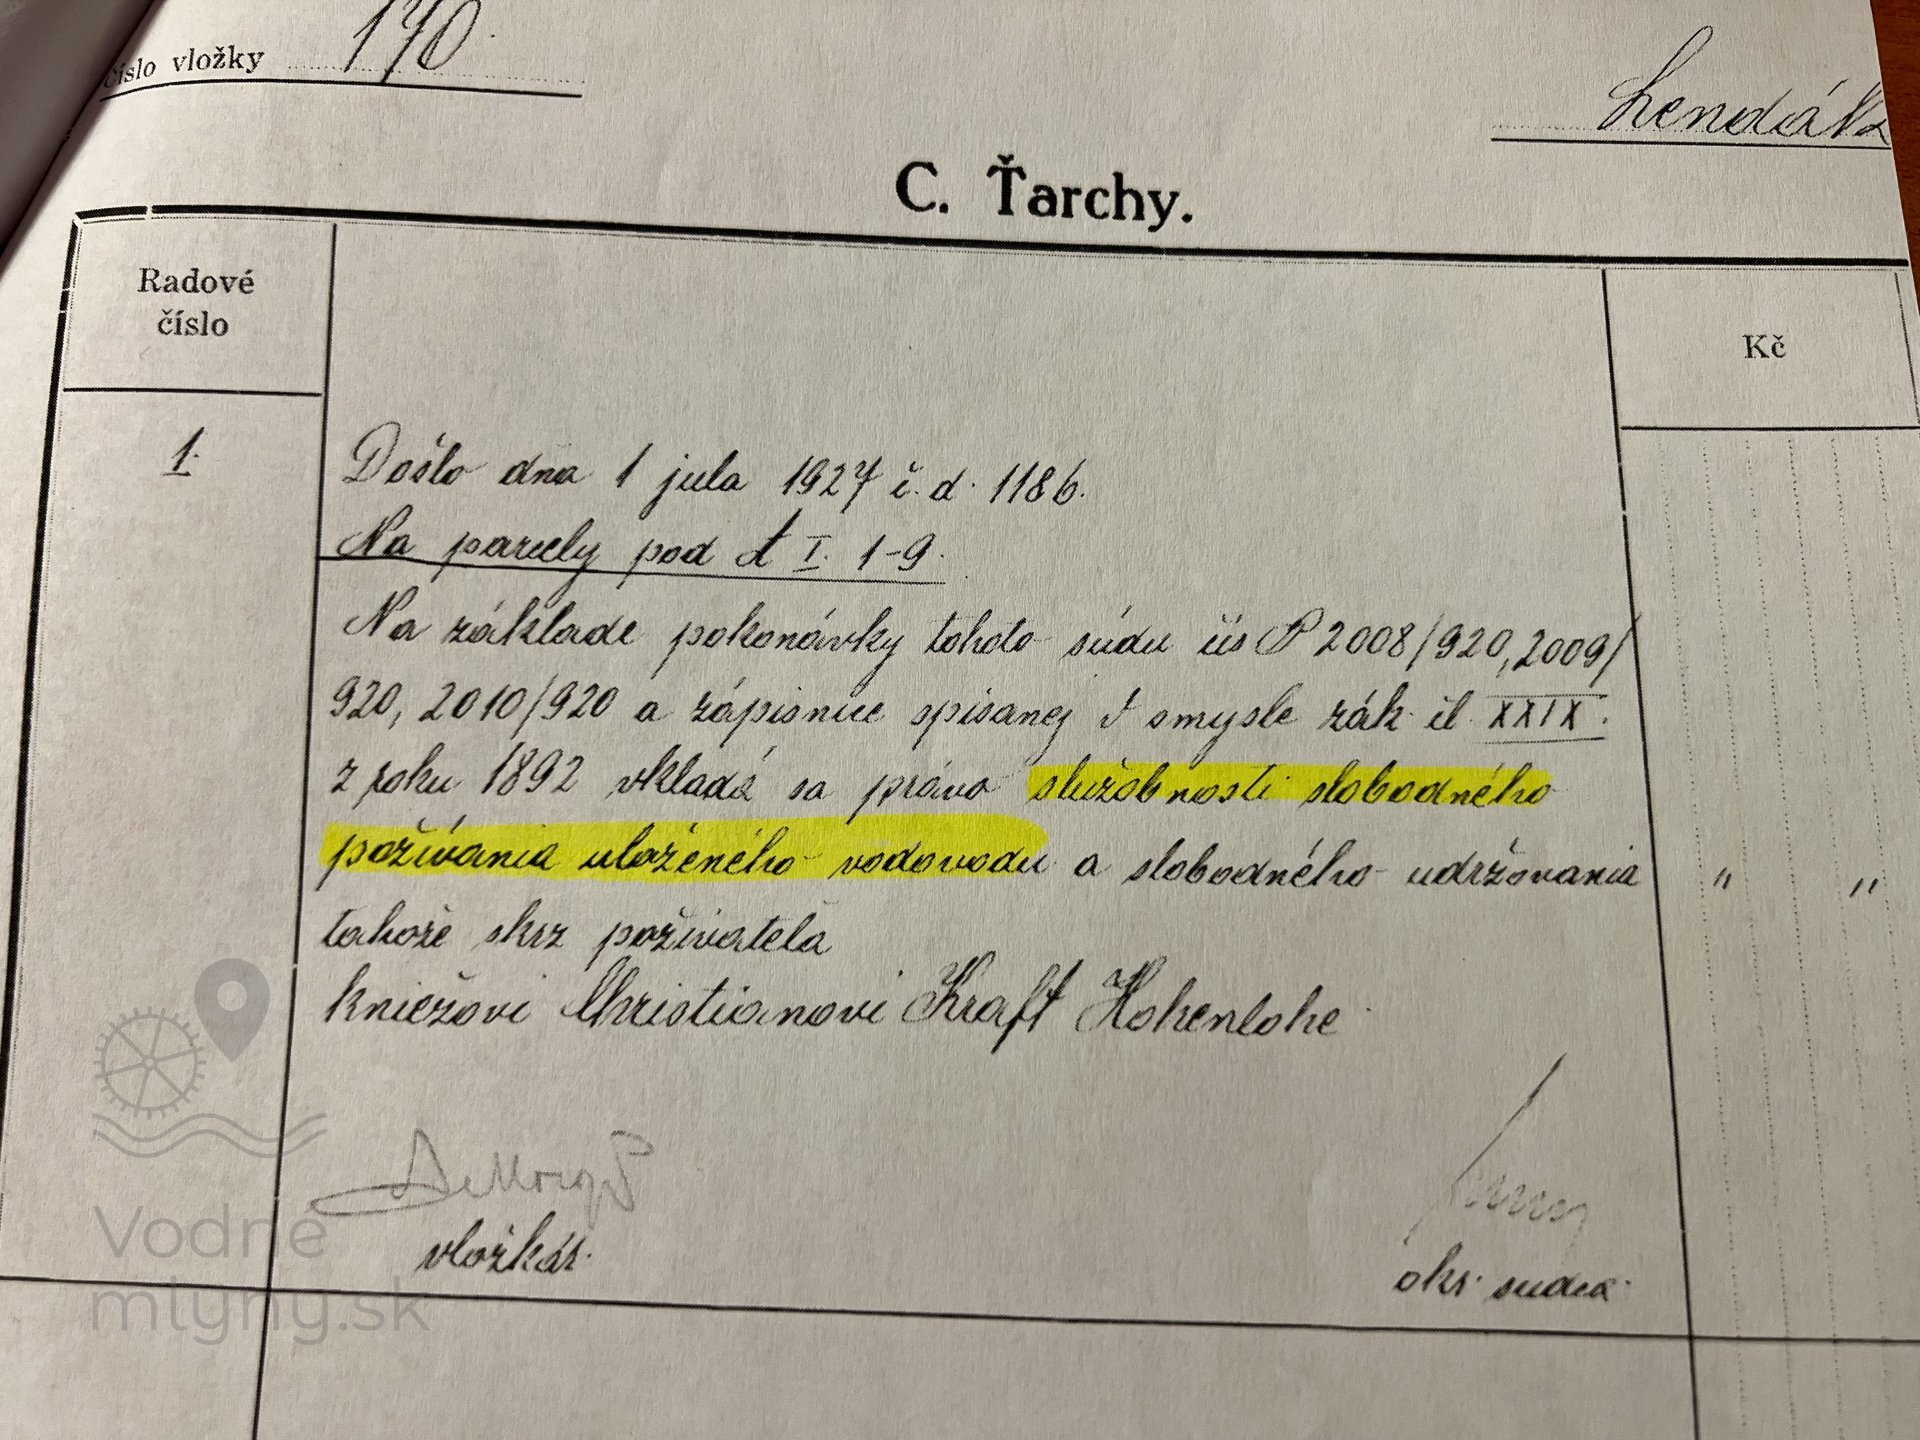 Číslo vložky 170.
Lendák
C. Ťarchy.
Radové
číslo
Kč
1.
Došlo dňa 1 jula 1927 č. d. 1186.
Na parcely pod A I. 1-9.
Na základe pokonávky tohoto súdu čís P 2008/920, 2009/
920, 2010/920 a zápisnice spísanej v smysle zák čl. XXIX.
z roku 1892 vkladá sa právo služobnosti slobodného
požívania uloženého vodovodu a slobodného udržovania
tohože skrz požívateľa " "
kniežovi Christianovi Kraft Hohenlohe
vložkár.
okr. sudca.
Vodné
mlyny.sk